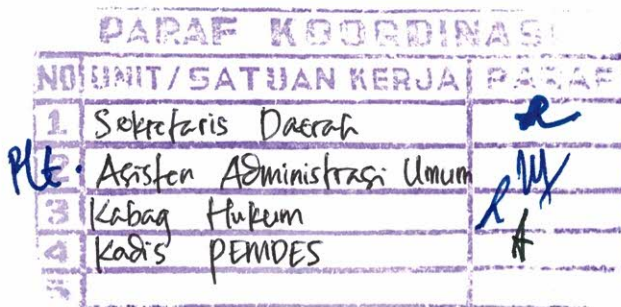 PARAF KOORDINASI
NO UNIT/SATUAN KERJA PARAF
1 Sekretaris Daerah
Plt. 2 Asisten Administrasi Umum
3 Kabag Hukum
4 Kadis PEMDES
5